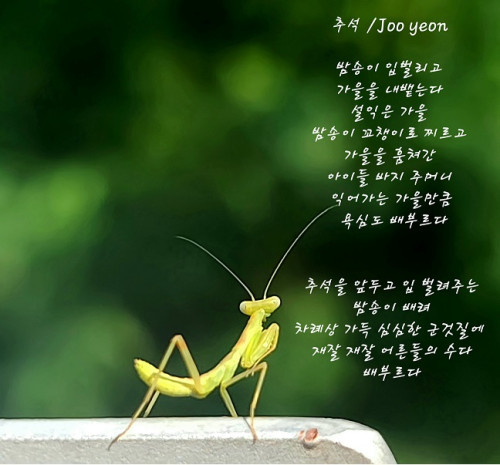 추석 /Joo yeon
밤송이 입벌리고
가을을 내뱉는다
설익은 가을
밤송이 꼬챙이로 찌르고
가을을 훔쳐간
아이들 바지 주머니
익어가는 가을만큼
욕심도 배부르다
추석을 앞두고 입 벌려주는
밤송이 배려
차례상 가득 심심한 군것질에
재잘 재잘 어른들의 수다
배부르다